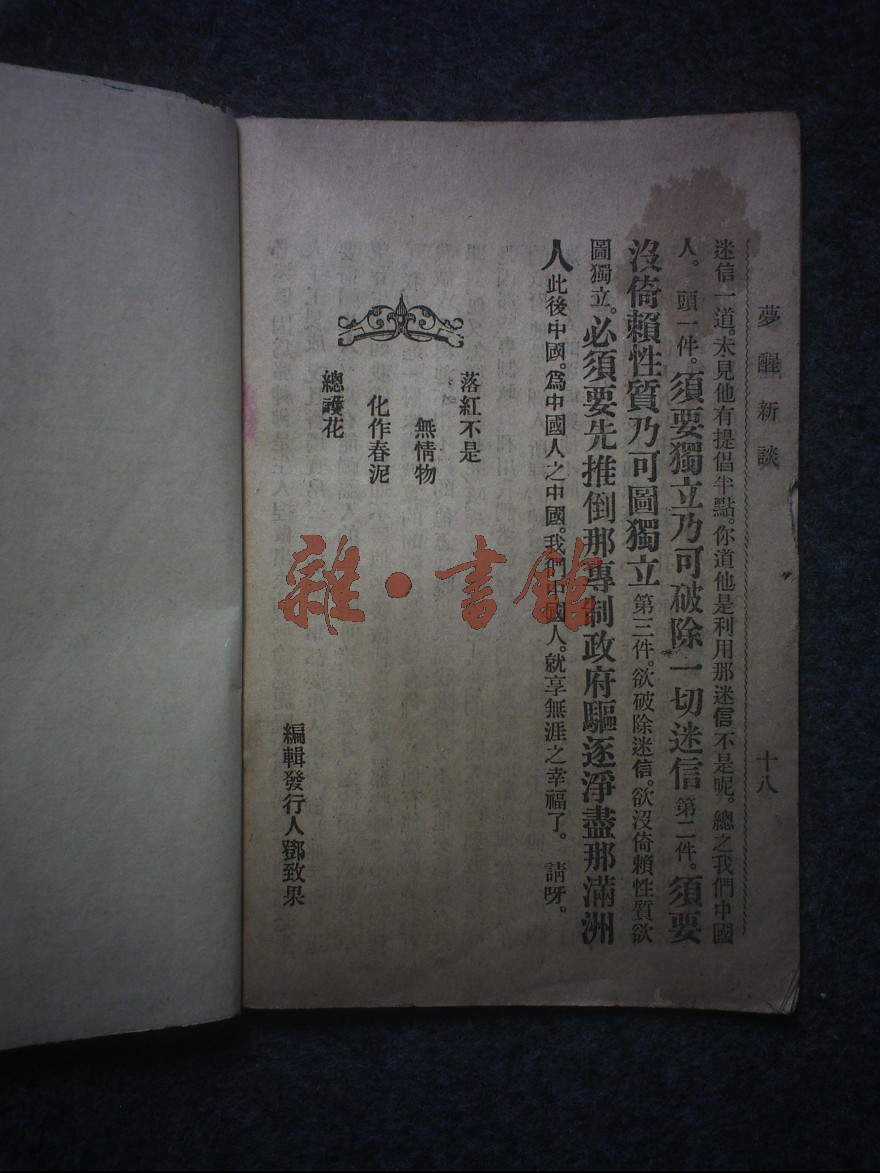 夢醒新談
十八
迷信一道。未見他有提倡半點。你道他是利用那迷信不是呢。總之我們中國
人。頭一件。須要獨立乃可破除一切迷信第二件。須要
沒倚賴性質乃可圖獨立第三件。欲破除迷信。欲沒倚賴性質欲
圖獨立。必須要先推倒那專制政府驅逐淨盡那滿洲
人此後中國。爲中國人之中國。我們中國人。就享無涯之幸福了。請呀。
落紅不是
無情物
化作春泥
總護花
編輯發行人鄧致果
雜·書館